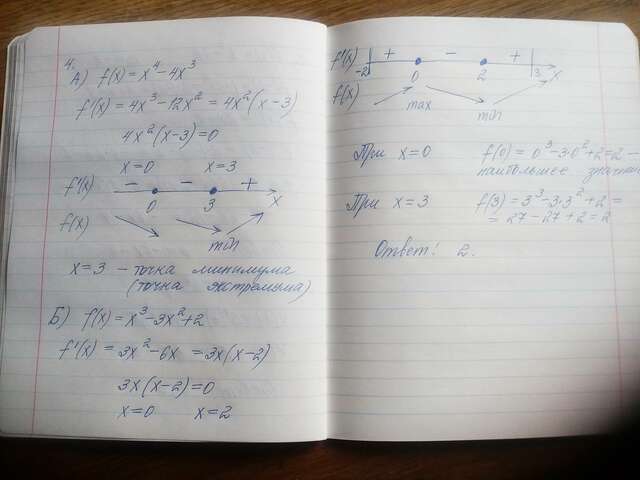 4.
А) f(x) = x⁴-4x³
f'(x) = 4x³-12x² = 4x²(x-3)
4x²(x-3)=0
x=0 x=3
f'(x) - - +
0 3 x
f(x)
min
x=3 - точка минимума
(точка экстремума)
Б) f(x) = x³-3x²+2
f'(x) = 3x²-6x = 3x(x-2)
3x(x-2)=0
x=0 x=2
f'(x) + - +
-2 0 2 3 x
f(x)
max min
При x=0 f(0) = 0³-3·0²+2=2 -
наибольшее
При x=3 f(3) = 3³-3·3²+2 =
= 27-27+2=2
Ответ: 2.